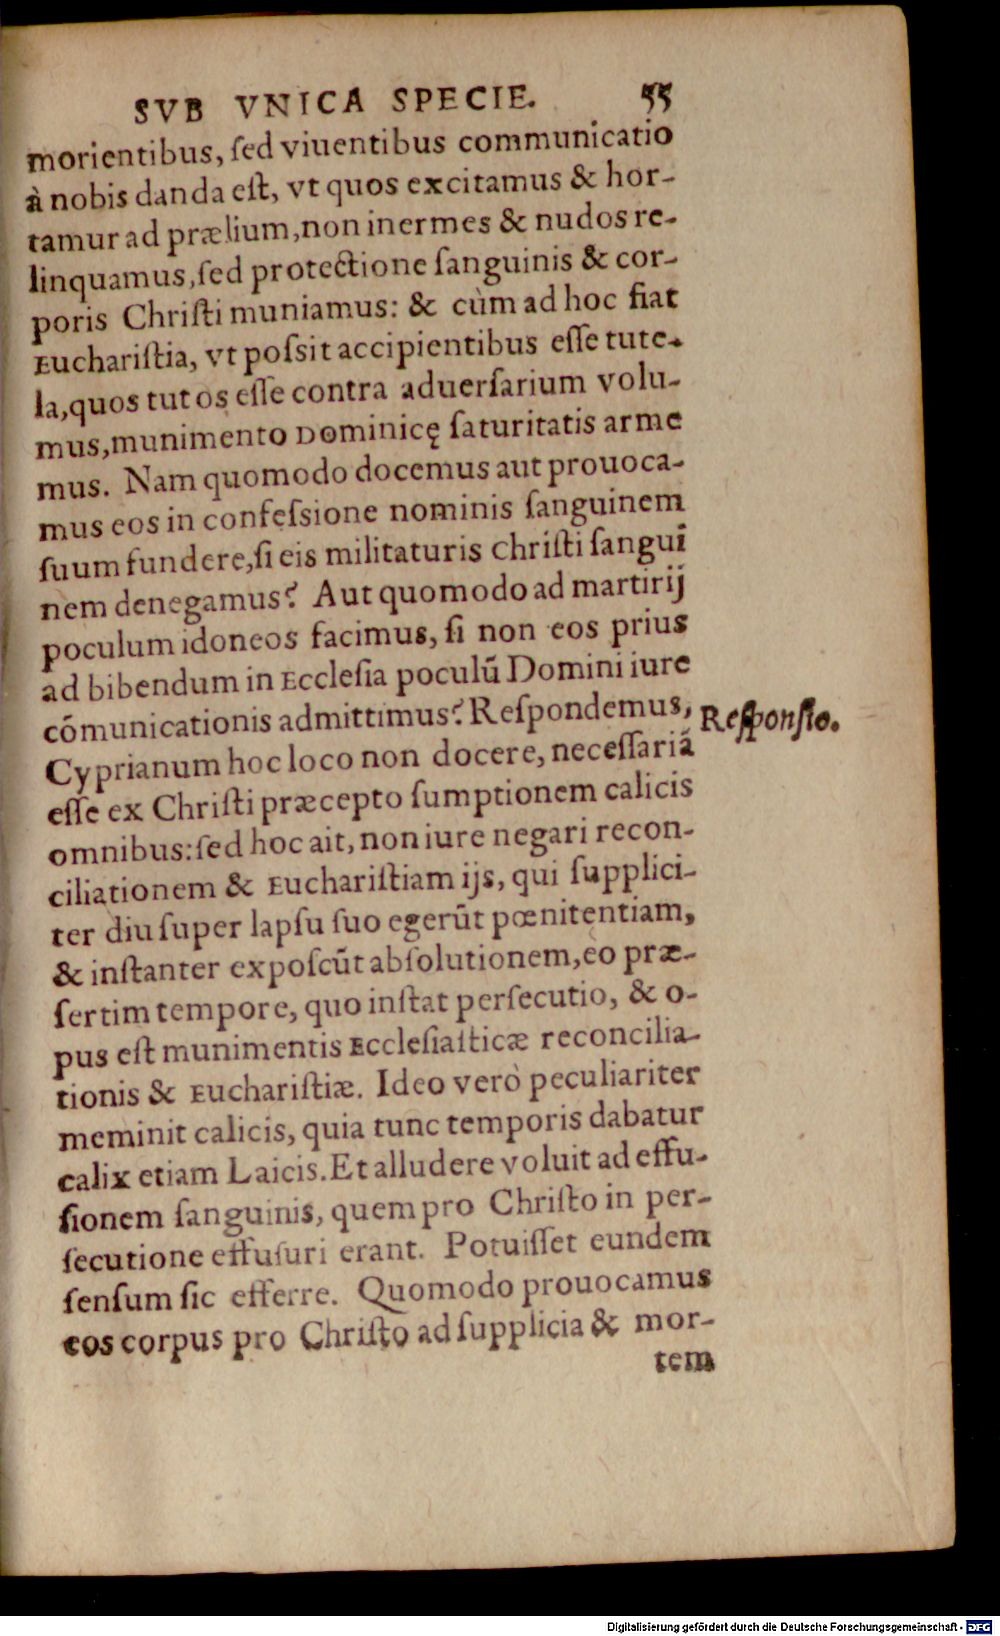 SVB VNICA SPECIE. 55
morientibus, ſed viuentibus communicatio
à nobis danda eſt, vt quos excitamus & hor-
tamur ad prælium, non inermes & nudos re-
linquamus, ſed protectione ſanguinis & cor-
poris Chriſti muniamus: & cùm ad hoc fiat
Euchariſtia, vt poſsit accipientibus eſſe tute-
la, quos tutos eſſe contra aduerſarium volu-
mus, munimento Dominicę ſaturitatis arme
mus. Nam quomodo docemus aut prouoca-
mus eos in confeſsione nominis ſanguinem
ſuum fundere, ſi eis militaturis Chriſti ſangui
nem denegamus? Aut quomodo ad martirij
poculum idoneos facimus, ſi non eos prius
ad bibendum in Eccleſia poculũ Domini iure
cõmunicationis admittimus? Reſpondemus,
Reſponſio.
Cyprianum hoc loco non docere, neceſſariã
eſſe ex Chriſti præcepto ſumptionem calicis
omnibus: ſed hoc ait, non iure negari recon-
ciliationem & Euchariſtiam ijs, qui ſupplici-
ter diu ſuper lapſu ſuo egerũt pœnitentiam,
& inſtanter expoſcũt abſolutionem, eo præ-
ſertim tempore, quo inſtat perſecutio, & o-
pus eſt munimentis Eccleſiaſticæ reconcilia-
tionis & Euchariſtiæ. Ideo verò peculiariter
meminit calicis, quia tunc temporis dabatur
calix etiam Laicis. Et alludere voluit ad effu-
ſionem ſanguinis, quem pro Chriſto in per-
ſecutione effuſuri erant. Potuiſſet eundem
ſenſum ſic efferre. Quomodo prouocamus
eos corpus pro Chriſto ad ſupplicia & mor-
tem
Digitalisierung gefördert durch die Deutsche Forschungsgemeinschaft - DFG